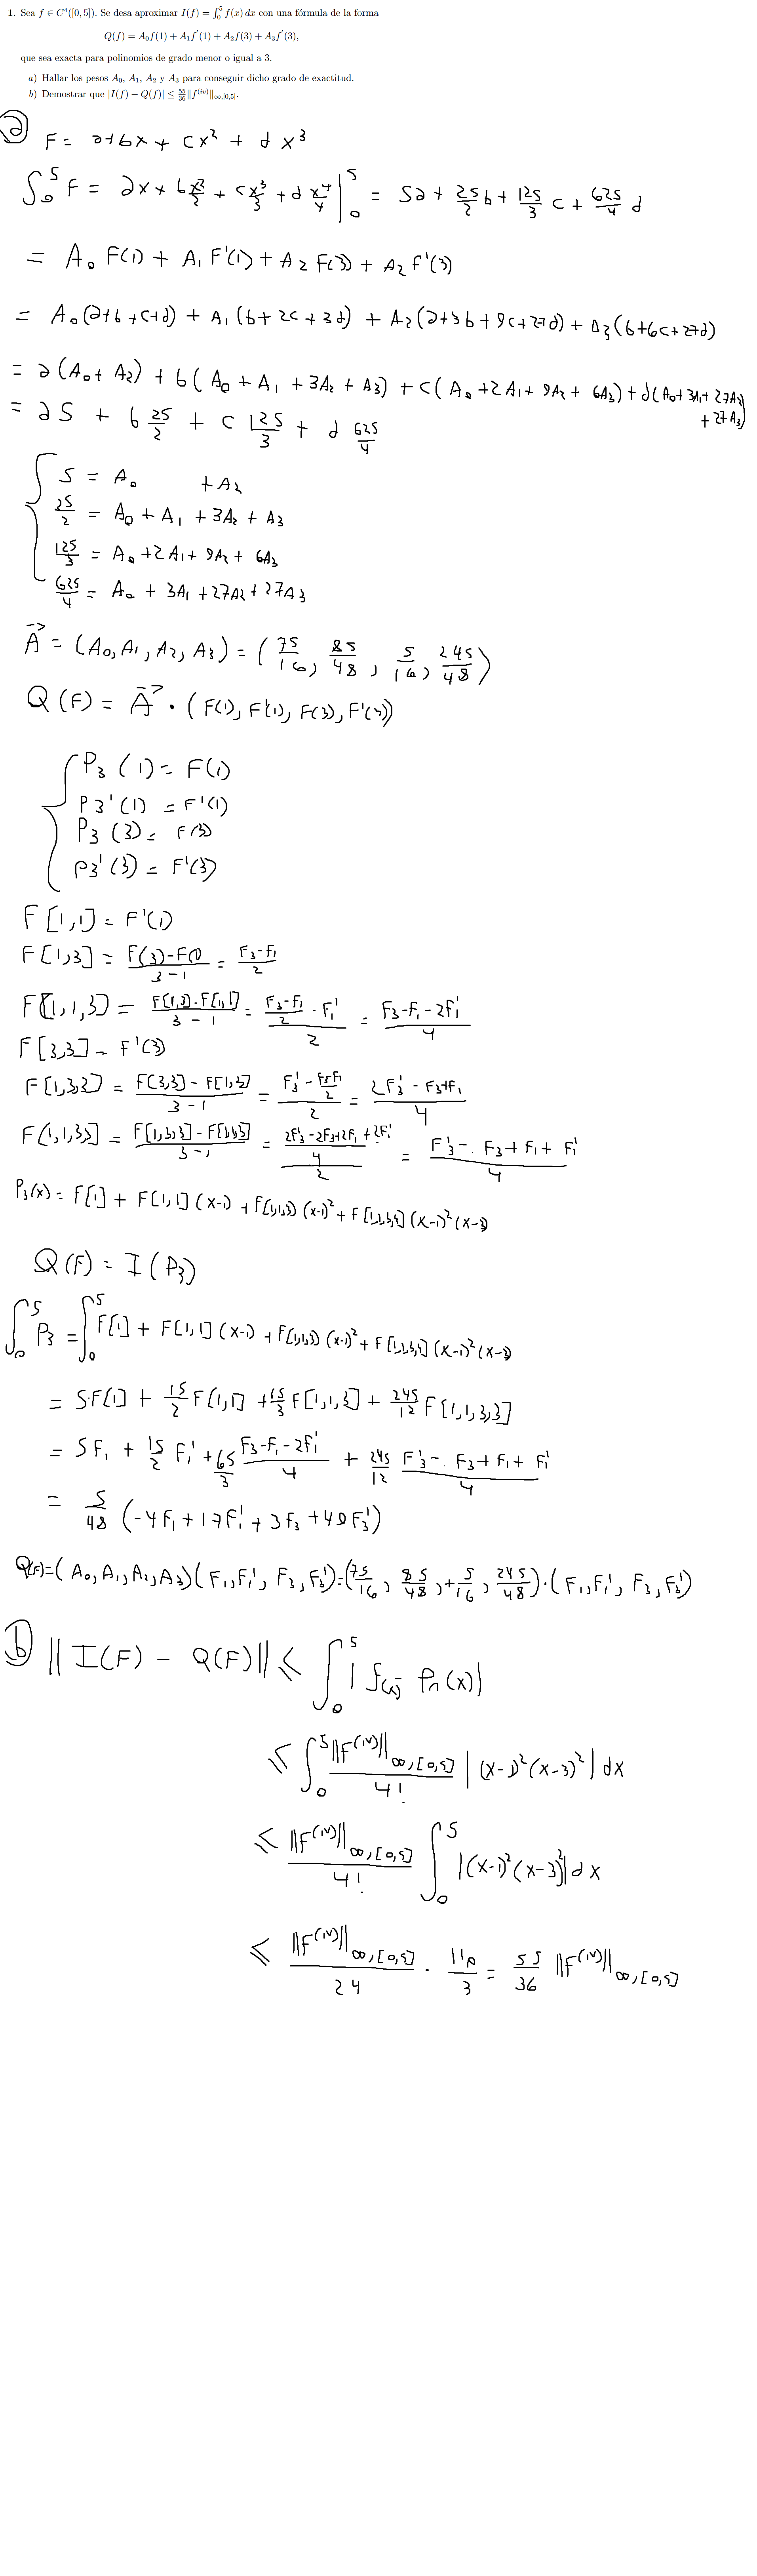 1. Sea f ∈ C⁴([0, 5]). Se desa aproximar I(f) = ∫₀⁵ f(x) dx con una fórmula de la forma
Q(f) = A₀f(1) + A₁f′(1) + A₂f(3) + A₃f′(3),
que sea exacta para polinomios de grado menor o igual a 3.
a) Hallar los pesos A₀, A₁, A₂ y A₃ para conseguir dicho grado de exactitud.
b) Demostrar que |I(f) − Q(f)| ≤ 55/36 ‖f^(iv)‖∞,[0,5].
a) F = a+bx + cx² + dx³
∫₀⁵ F = ax + b x²/2 + c x³/3 + d x⁴/4 |₀⁵ = 5a + 25/2 b + 125/3 c + 625/4 d
= A₀ F(1) + A₁ F'(1) + A₂ F(3) + A₂ F'(3)
= A₀(a+b+c+d) + A₁(b+2c+3d) + A₂(a+3b+9c+27d) + A₃(b+6c+27d)
= a(A₀+A₂) + b(A₀+A₁+3A₂+A₃) + c(A₀+2A₁+9A₂+6A₃) + d(A₀+3A₁+27A₂
+27A₃)
= a5 + b 25/2 + c 125/3 + d 625/4
{ 5 = A₀ + A₂
25/2 = A₀ + A₁ + 3A₂ + A₃
125/3 = A₀ + 2A₁ + 9A₂ + 6A₃
625/4 = A₀ + 3A₁ + 27A₂ + 27A₃
A⃗ = (A₀, A₁, A₂, A₃) = (75/16, 85/48, 5/16, 245/48)
Q(F) = A⃗ · (F(1), F'(1), F(3), F'(3))
{ P₃(1) = F(1)
P3'(1) = F'(1)
P₃(3) = F(3)
P3'(3) = F'(3)
F[1,1] = F'(1)
F[1,3] = (F(3)-F(1))/(3-1) = (F₃-F₁)/2
F[1,1,3] = (F[1,3]-F[1,1])/(3-1) = ((F₃-F₁)/2 - F₁')/2 = (F₃-F₁-2F₁')/4
F[3,3] = F'(3)
F[1,3,3] = (F[3,3]-F[1,3])/(3-1) = (F₃' - (F₃-F₁)/2)/2 = (2F₃'-F₃+F₁)/4
F[1,1,3,3] = (F[1,3,3]-F[1,1,3])/(3-1) = ((2F₃'-2F₃+2F₁+2F₁')/4)/2 = (F₃'-F₃+F₁+F₁')/4
P₃(x) = F[1] + F[1,1](x-1) + F[1,1,3](x-1)² + F[1,1,3,3](x-1)²(x-3)
Q(F) = I(P₃)
∫₀⁵ P₃ = ∫₀⁵ F[1] + F[1,1](x-1) + F[1,1,3](x-1)² + F[1,1,3,3](x-1)²(x-3)
= 5·F[1] + 15/2 F[1,1] + 65/3 F[1,1,3] + 245/12 F[1,1,3,3]
= 5F₁ + 15/2 F₁' + 65/3 (F₃-F₁-2F₁')/4 + 245/12 (F₃'-F₃+F₁+F₁')/4
= 5/48 (-4F₁+17F₁'+3F₃+49F₃')
Q(F) = (A₀,A₁,A₂,A₃)(F₁,F₁',F₃,F₃') = (75/16, 85/48, +5/16, 245/48)·(F₁,F₁',F₃,F₃')
b) ‖I(F) - Q(F)‖ ≤ ∫₀⁵ |f(x) - Pn(x)|
≤ ∫₀⁵ ‖F^(IV)‖∞,[0,5]/4! |(x-1)²(x-3)²| dx
≤ ‖F^(IV)‖∞,[0,5]/4! ∫₀⁵ |(x-1)²(x-3)²| dx
≤ ‖F^(IV)‖∞,[0,5]/24 · 110/3 = 55/36 ‖F^(IV)‖∞,[0,5]